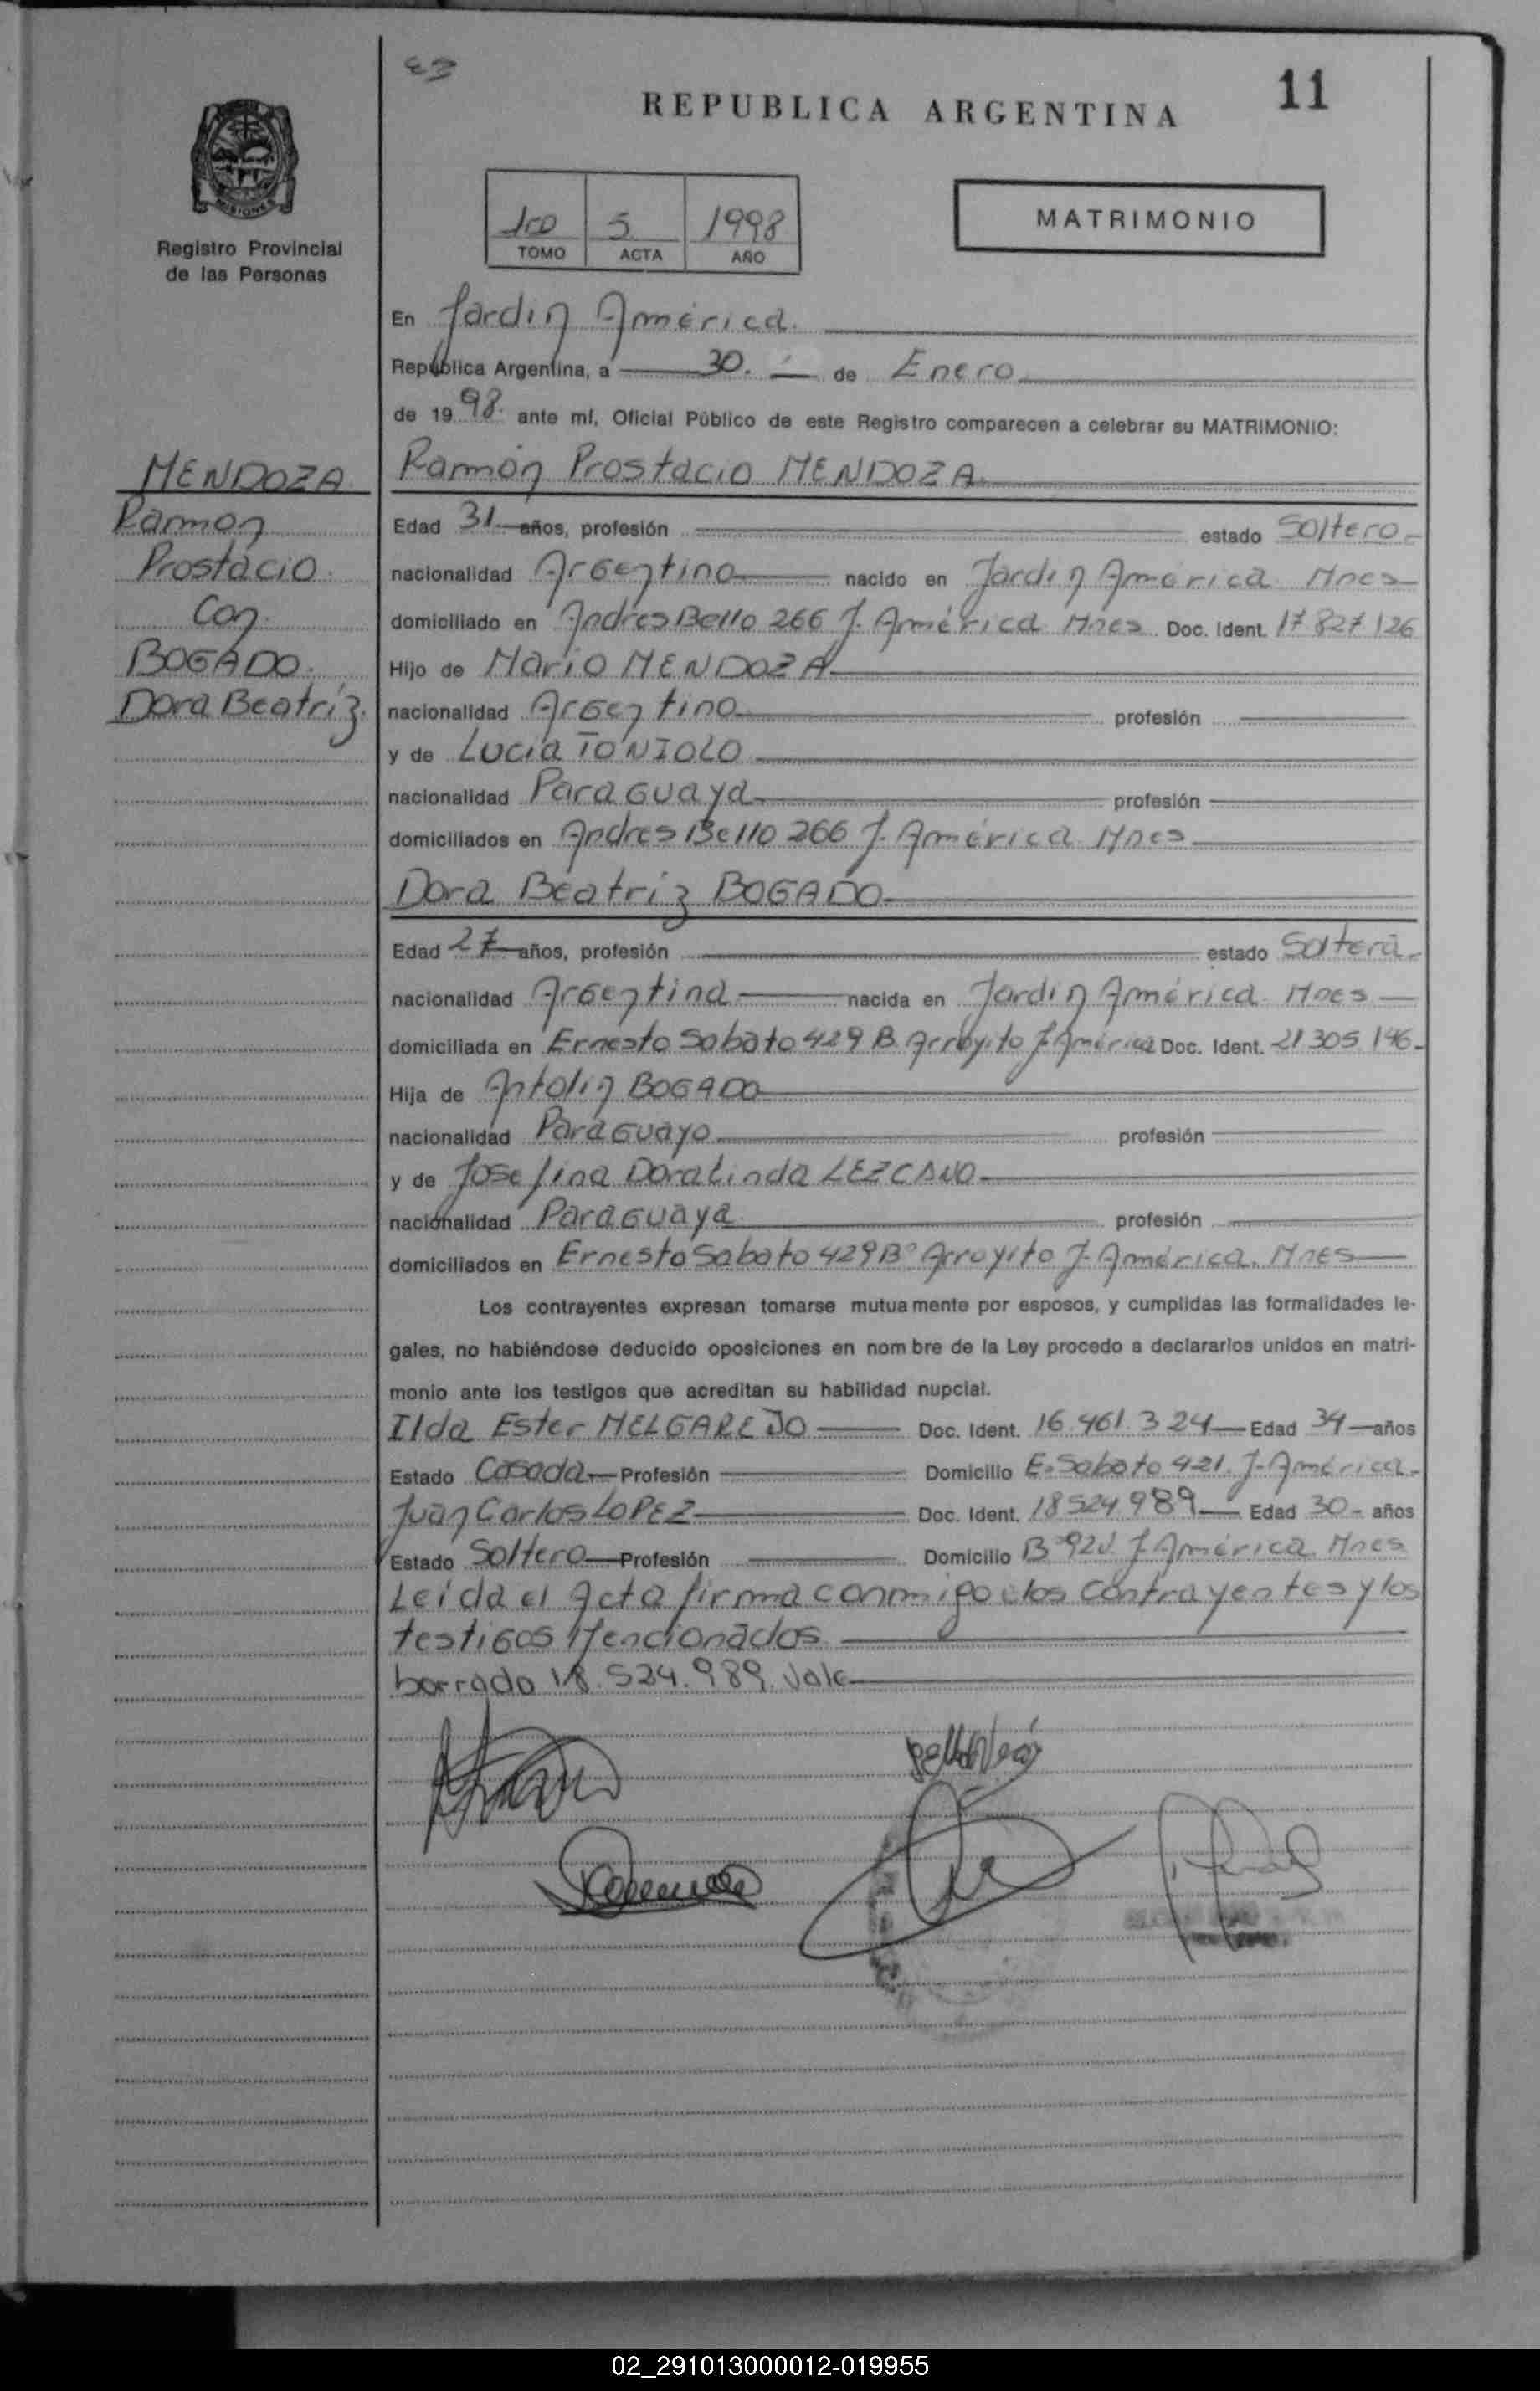 11
REPUBLICA ARGENTINA
MISIONES
Registro Provincial
de las Personas
1ro 5 1998
TOMO ACTA AÑO
MATRIMONIO
En Jardin América.
República Argentina, a 30. de Enero
de 1998. ante mí, Oficial Público de este Registro comparecen a celebrar su MATRIMONIO:
MENDOZA
Ramon
Prostacio.
Con.
BOGADO.
Dora Beatriz.
Ramón Prostacio MENDOZA
Edad 31 años, profesión estado Soltero
nacionalidad Argentino nacido en Jardin América Mnes
domiciliado en Andres Bello 266 J. América Mnes Doc. Ident. 17 827 126
Hijo de Mario MENDOZA
nacionalidad Argentino profesión
y de Lucia TONIOLO
nacionalidad Paraguaya profesión
domiciliados en Andres Bello 266 J. América Mnes
Dora Beatriz BOGADO
Edad 27 años, profesión estado Soltera
nacionalidad Argentina nacida en Jardin América Mnes
domiciliada en Ernesto Sabato 429 B. Arroyito J. América Doc. Ident. 21 305 146
Hija de Antolin BOGADO
nacionalidad Paraguayo profesión
y de Josefina Doralinda LEZCANO
nacionalidad Paraguaya profesión
domiciliados en Ernesto Sabato 429 B° Arroyito J. América. Mnes
Los contrayentes expresan tomarse mutuamente por esposos, y cumplidas las formalidades le-
gales, no habiéndose deducido oposiciones en nombre de la Ley procedo a declararlos unidos en matri-
monio ante los testigos que acreditan su habilidad nupcial.
Ilda Ester MELGAREJO Doc. Ident. 16.461.324 Edad 34 años
Estado Casada Profesión Domicilio E. Sabato 421. J. América
Juan Carlos LOPEZ Doc. Ident. 18 524 989 Edad 30 años
Estado Soltero Profesión Domicilio B° J América Mnes
Leida el Acta firma conmigo los contrayentes y los
testigos Mencionados
borrado 18.524.989. Vale
02_291013000012-019955